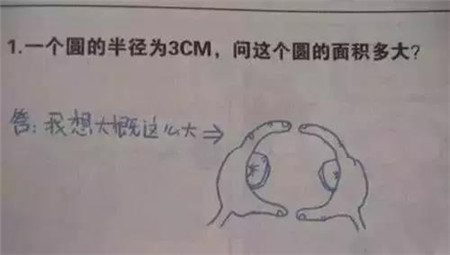 1.一个圆的半径为3CM，问这个圆的面积多大？
答：我想大概这么大⇒